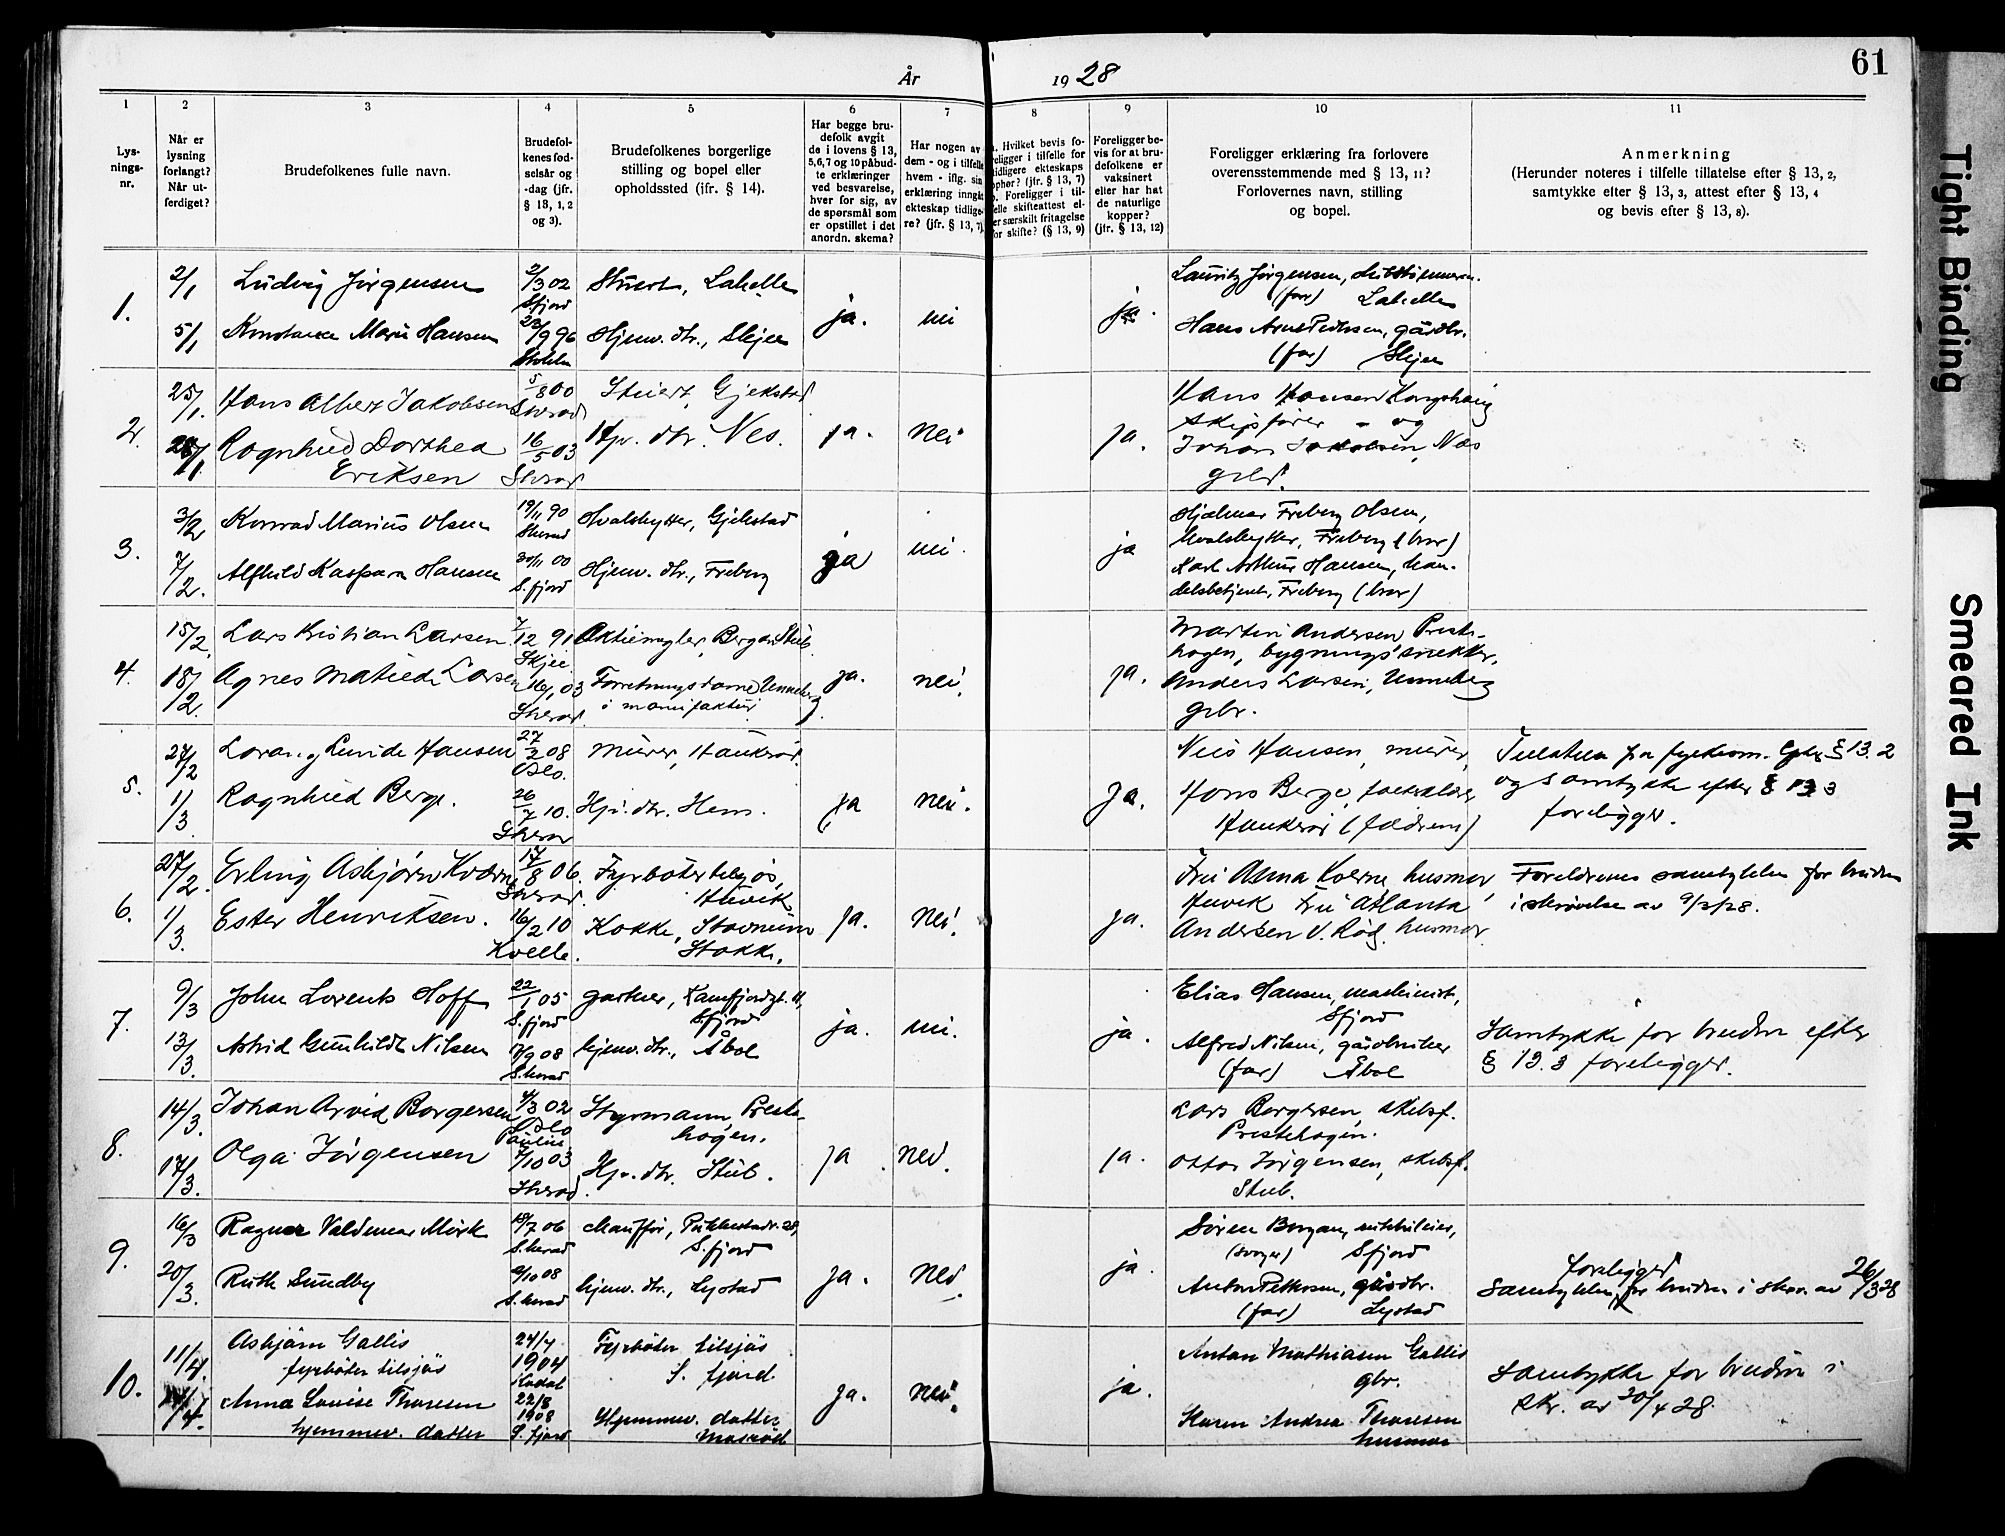 År 1928
61
1
2
3
4
5
6
7
8
9
10
11
Lys-
nings-
nr.
Når er
lysning
forlangt?
Når ut-
ferdiget?
Brudefolkenes fulle navn.
Brudefol-
kenes fød-
selsår og
-dag (jfr.
§ 18, 1, 2
og 3).
Brudefolkenes borgerlige
stilling og bopel eller
opholdssted (jfr. § 14).
Har begge bru-
defolk avgit
de i lovens § 13,
5,6,7 og 10 påbud-
te erklæringer
ved besvarelse,
hver for sig, av
de spørsmål som
er opstillet i det
anordn. skema?
Har nogen av
dem - og i tilfelle
hvem - iflg. sin
erklæring inngått
ekteskap tidlige-
re? (jfr. § 13, 7)
a. Hvilket bevis fo-
religger i tilfelle for
tidligere ekteskaps
ophør? (jfr. § 13, 7)
b. Foreligger i til-
felle skifteattest el-
ler særskilt fritagelse
for skifte? (§ 13, 9)
Foreligger be-
vis for at bru-
defolkene er
vaksinert
eller har hat
de naturlige
kopper?
(jfr. § 13, 12)
Foreligger erklæring fra forlovere
overensstemmende med § 13, 11?
Forlovernes navn, stilling
og bopel.
Anmerkning
(Herunder noteres i tilfelle tillatelse efter § 13, 2,
samtykke efter § 13, 3, attest efter § 13, 4
og bevis efter § 13, 8).
1.
2/1
5/1
Ludvig Jørgensen
Marie Hansen
2/3 02
Sfjord
23/9 96
Stuert, Lahelle
Hjemv. dtr., Skjee
ja.
nei
ja.
Lauritz Jørgensen,
(far) Lahelle
Hans Pedersen, gårdbr.
(far) Skjee
2.
25/1.
Hans Albert Jakobsen
Ragnhild Dorthea
Eriksen
5/8 00
Sherad
16/5 03
Sherad
Stuert, Gjekstad
Hjv. dtr. Nes.
ja.
nei
ja.
Hans Hansen
Skipsfører - og
Johan Jakobsen, Nes
grbd.
3.
3/2
7/2.
Konrad Marius Olsen
Alfhild Kaspara Hansen
19/11 90
Sherad
30/11 00
S.fjord
Hvalskytter, Gjekstad
Hjemv. dtr., Freberg
ja
nei.
ja
Hjalmar Freberg Olsen,
hvalskytter, Freberg (bror)
Karl Arthur Hansen, han-
delsbetjent, Freberg (bror)
4.
15/2.
18/2.
Lars Kristian Larsen.
Agnes Matilde Larsen
7/12 91
Skjee
16/1 03
Sherad.
Aktiemegler, Bergan Stub.
Forretningsdame Unneberg
i manifaktur.
ja.
nei.
ja.
Martin Andersen Preste-
hagen, bygningssnekker,
Anders Larsen, Unneberg
grbr.
5.
27/2
1/3.
Lunde Hansen
Ragnhild Berge.
27/2 08
Oslo.
26/7 10.
Sherad
Murer, Haukerød.
Hjv. dtr. Hem.
ja
nei.
ja.
Nils Hansen, murer,
Hans Berge,
Haukerød (fædrene)
§ 13. 2
og samtykke efter § 13 3
foreligger.
6.
27/2.
1/3.
Erling Asbjørn Kværne
Ester Henriksen.
17/8 06.
Sherad.
16/2 10
Kvelle.
Fyrbøter tilsjøs,
Huvik
Kokke, Stavnum
Stokke.
ja.
nei.
ja.
Fru Anna Kverne husmor
Huvik Fru Atlanta
Andersen V. Rød. husmor.
Foreldrenes samtykke for bruden
i skrivelse av 9/2/28.
7.
9/3
13/3.
John Lorents Hoff
Astrid Gunhildt Nilsen
22/1 05
S.fjord
17/9 08
S.herad
gartner, Kamfjordgt. 11,
Sfjord
hjemv. dtr., Åbol
ja.
nei.
ja.
Elias Hansen, maskinist,
Sfjord
Alfred Nilsen, gårdbruker
(far) Åbol
Samtykke for bruden efter
§ 13. 3 foreligger.
8.
14/3.
17/3.
Johan Arvid Borgersen
Olga Jørgensen
4/3 02
Oslo
Pauline
7/10 03
Sherad.
Styrmann Preste-
hagen.
Hjv. dtr. Stub.
ja.
nei.
ja.
Lars Borgersen, skibsf.
Prestehagen.
Ottar Jørgensen, skibsf.
Stub.
9.
16/3
20/3.
Ragnar Valdemar Mørk
Ruth Sundby
18/7 06
S.herad
9/10 08
S.herad
Chauffør,
S.fjord
hjemv. dtr., Lystad
ja.
nei.
ja.
Søren Bergan,
(svoger) Sfjord
Anton Pettersen, gårdbr.
(far) Lystad
foreligger
samtykke, for bruden i skr. av 26/3 28
10.
11/4.
14/4.
Asbjørn Gallis
fyrbøter tilsjøs
Anna Lovise Thoresen
hjemmev. datter
24/4
1904
Kodal
22/8
1908
S. fjord
Fyrbøter tilsjøs
S. fjord
Hjemmev. datter
Mosserød
ja.
nei.
ja.
Anton Mathiasen Gallis
gbr.
Karen Andrea Thoresen
husmor
Samtykke for bruden i
skr. av 30/4 28.
Tight Binding
Smeared Ink